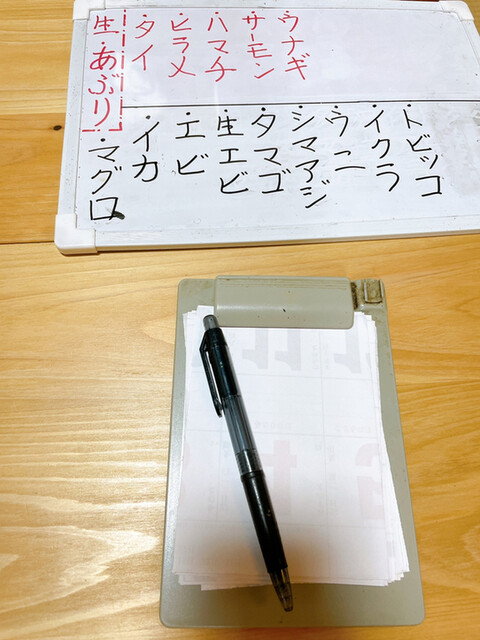 生・あぶり
・タイ
・ヒラメ
・ハマチ
・サーモン
・ウナギ
・マグロ
・イカ
・エビ
・生エビ
・タマゴ
・シマアジ
・ウニ
・イクラ
・トビッコ